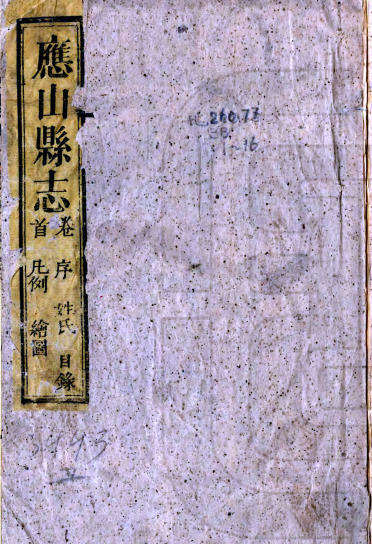 應山縣志
卷首
序 姓氏 目錄
凡例 繪圖
260.73
1-16